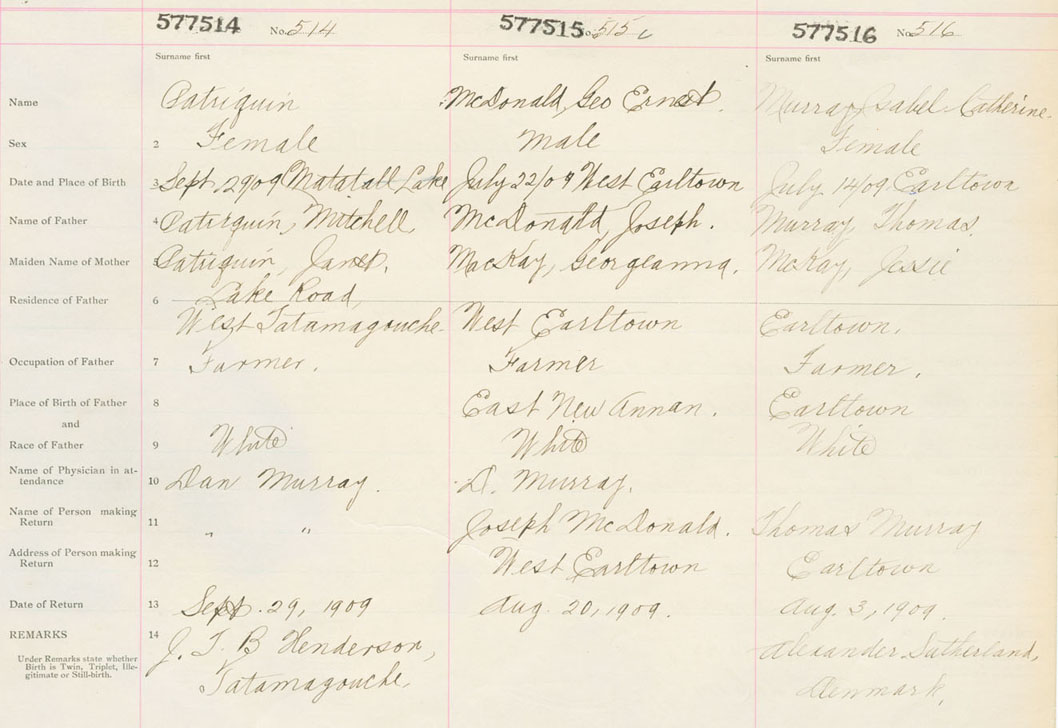 577514 No. 514
577515 No. 515
577516 No. 516
Surname first Surname first Surname first
Name Patriquin McDonald, Geo Ernest. Murray, Isabel Catherine.
Sex 2 Female Male Female
Date and Place of Birth 3 Sept. 29 09 Matatall Lake July 22/09 West Earltown July 14 09 Earltown
Name of Father 4 Patriquin, Mitchell McDonald, Joseph. Murray, Thomas.
Maiden Name of Mother 5 Patriquin, Janet. MacKay, Georgeanna. McKay, Jessie
Residence of Father 6 Lake Road,
West Tatamagouche West Earltown Earltown.
Occupation of Father 7 Farmer. Farmer Farmer.
Place of Birth of Father 8 East New Annan. Earltown
and
Race of Father 9 White White White
Name of Physician in at-
tendance 10 Dan Murray. D. Murray.
Name of Person making
Return 11 " " Joseph McDonald. Thomas Murray
Address of Person making
Return 12 West Earltown Earltown
Date of Return 13 Sept. 29, 1909 Aug. 20, 1909. Aug. 3, 1909.
REMARKS 14 J. T. B Henderson, Alexander Sutherland,
Under Remarks state whether
Birth is Twin, Triplet, Ille-
gitimate or Still-birth.
Tatamagouche. Denmark.